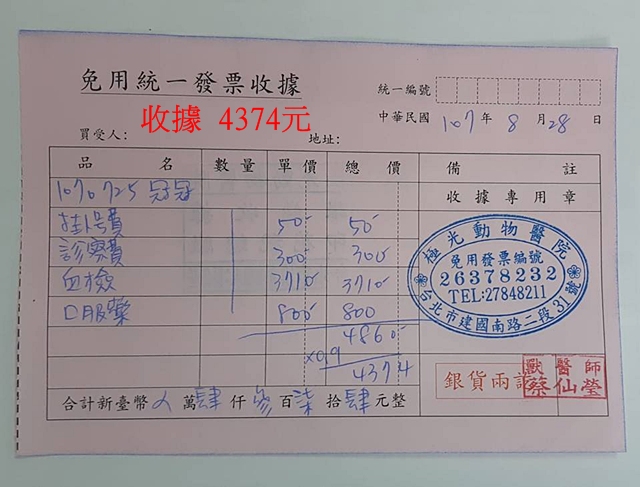 免用統一發票收據
統一編號
中華民國 107 年 8 月 28 日
收據 4374元
買受人: 地址:
品名 數量 單價 總價 備註
收據專用章
1070725 冠冠
掛号費 50 50
診察費 300 300
血檢 3710 3710
口服藥 800 800
4860
x0.9
4374
極光動物醫院
免用發票編號
26378232
TEL:27848211
台北市建國南路二段31號
銀貨兩訖
獸醫師
蔡仙瑩
合計新臺幣 萬肆仟參百柒拾肆元整